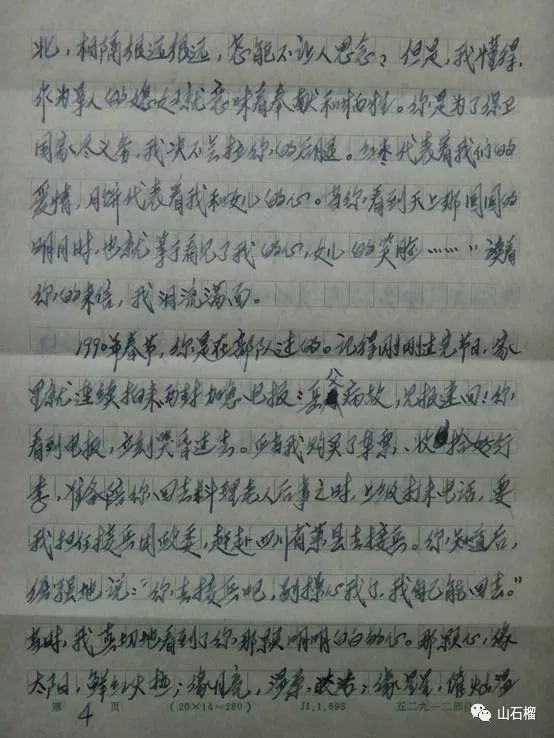 北，相隔很远很远，怎能不让人思念？但是，我懂得，
作为军人的媳妇就意味着奉献和牺牲。你是为了保卫
国家尽义务，我决不会拉你的后腿。红枣代表着我们的
爱情，月饼代表着我和女儿的心。当你看到天上那圆圆的
明月时，也就等于看见了我的心，女儿的笑脸……”读着
你的来信，我泪流满面。
1990年春节，你是在部队过的。记得刚刚过完节日，家
里就连续拍来两封加急电报：岳父病故，见报速回！你
看到电报，立刻哭昏过去。正当我购买了车票、收拾好行
李，准备陪你回去料理老人后事之时，上级打来电话，要
我担任接兵团政委，赶赴四川省某县去接兵。你知道后，
倔强地说：“你去接兵吧，别操心我了，我自己能回去。”
当时，我真切地看到了你那颗明明白白的心。那颗心，像
太阳，鲜红火热；像月亮，温柔，皎洁；像星星，璀灿
第 4 页 (20×14=280) J1.1.895 五二九一二部
山石榴